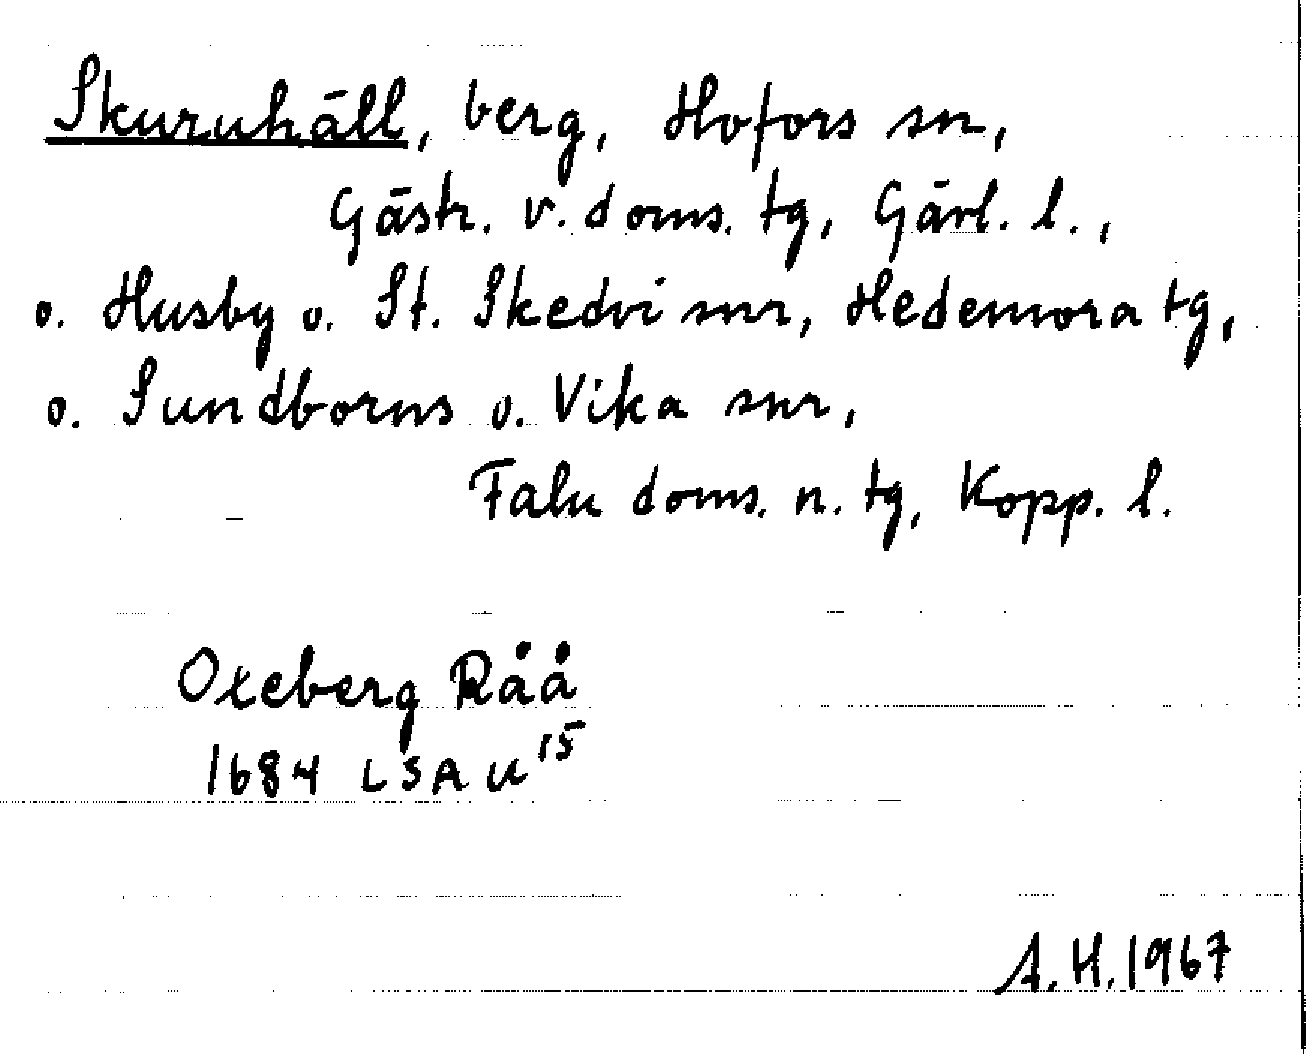 Skuruhäll, berg, Hofors sn,
Gästr. v. doms. tg, Gävl. l.,
o. Husby o. St. Skedvi snr, Hedemora tg,
o. Sundborns o. Vika snr,
Falu doms. n. tg, Kopp. l.
Oxeberg Råå
1684 LSA U 15
A.H. 1967